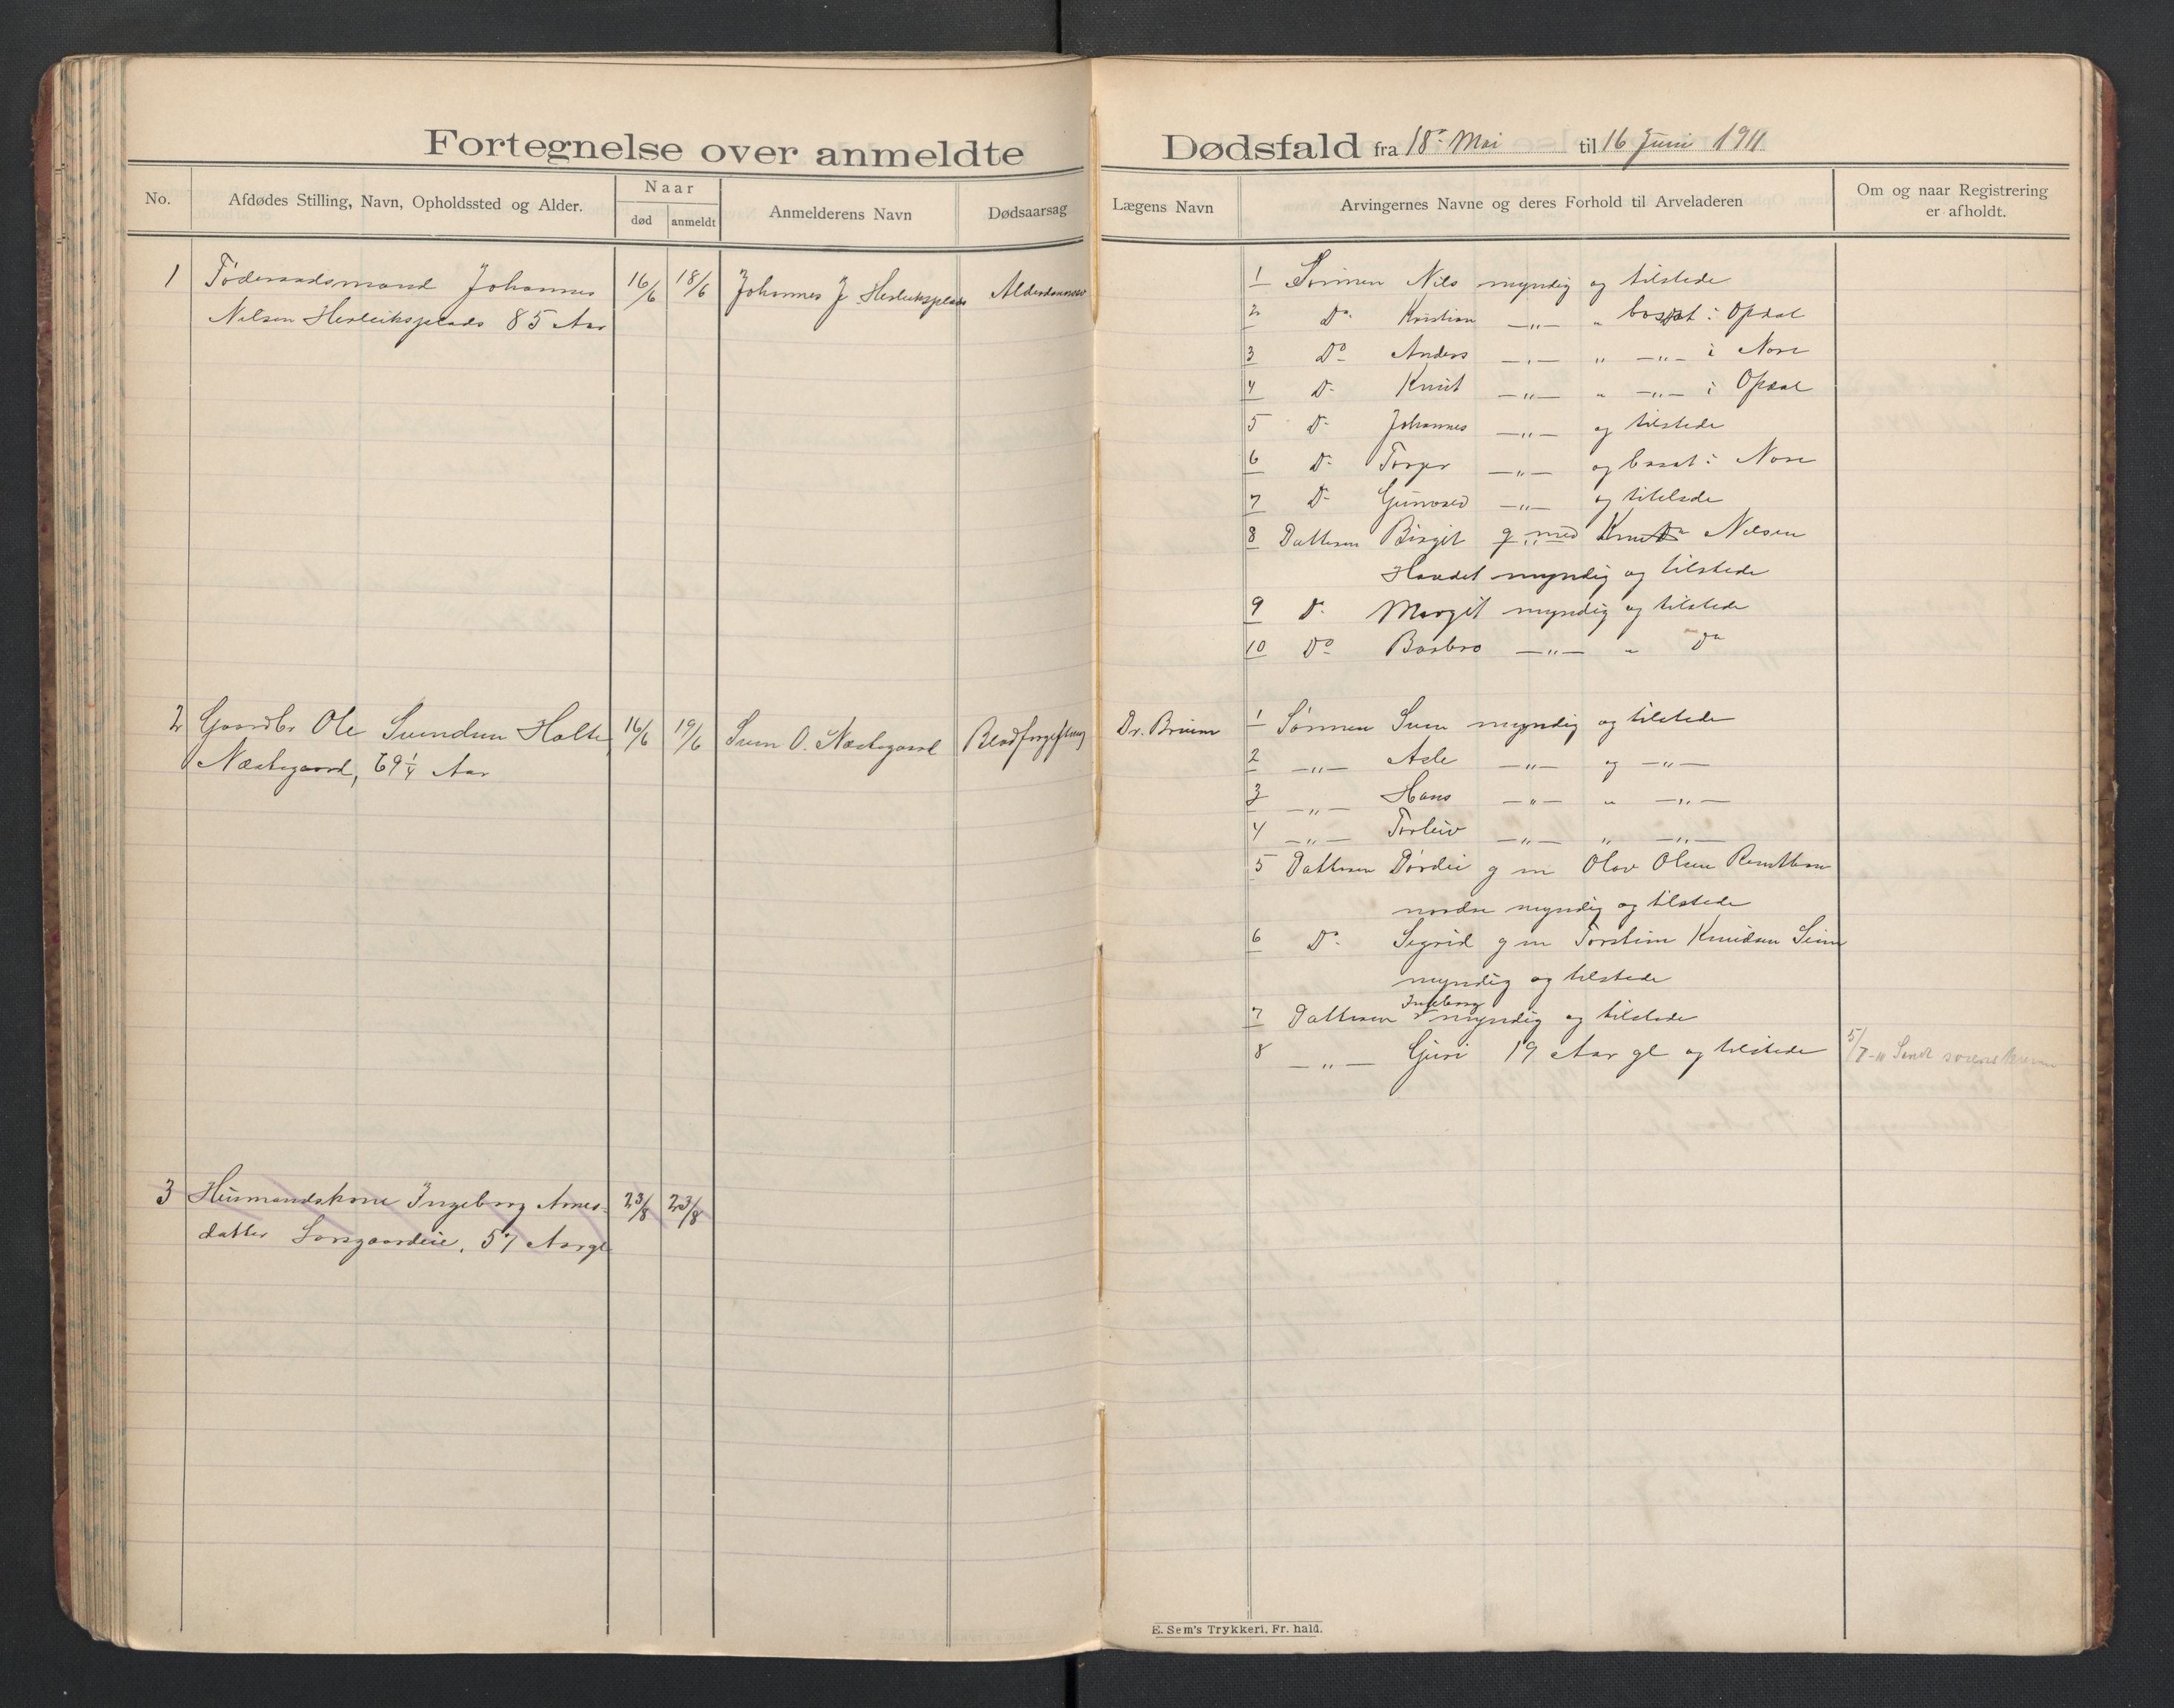 Fortegnelse over anmeldte Dødsfald fra 18de Mai til 16 Juni 1911
No.
Afdødes Stilling, Navn, Opholdssted og Alder.
Naar
død
anmeldt
Anmelderens Navn
Dødsaarsag
Lægens Navn
Arvingernes Navne og deres Forhold til Arveladeren
Om og naar Registrering
er afholdt.
1 Føderaadsmand Johannes 16/6 18/6 Johannes J Herleiksplads
Nilsen Herleiksplads 85 Aar
1 Sønnen Nils myndig og tilstede
2 Do Kristian —„— „ bosat i Opdal
3 Do Anders —„— „ —„— i Nore
4 Do Knut —„— „ —„— i Opdal
5 Do Johannes —„— og tilstede
6 Do Torger —„— og bosat i Nore
7 Do —„— og tilstede
8 Datteren Birgit g med Nilsen
myndig og tilstede
9 Do Margit myndig og tilstede
10 Do Barbro —„— „ Do
2 Gaardbr Ole Svendsen Holte 16/6 19/6 Svein O. Nedregaard Blodforgiftning Dr. Bruun
69 1/4 Aar
1 Sønnen Svein myndig og tilstede
2 —„— Asle —„— og —„—
3 —„— Hans —„— „ —„—
4 —„— Torleiv —„— „ —„—
5 Datteren Dordei g m Olav Olsen
nordre myndig og tilstede
6 Do Sigrid g m Torstein Knudsen
myndig og tilstede
Ingeborg
7 Datteren myndig og tilstede
8 —„— Guri 19 Aar gl og tilstede 5/7-11 Sendt sorenskriveren
3 Husmandskone Ingeborg Arnes- 23/8 23/8
datter 57 Aar gl
E. Sem's Trykkeri, Fr. hald.